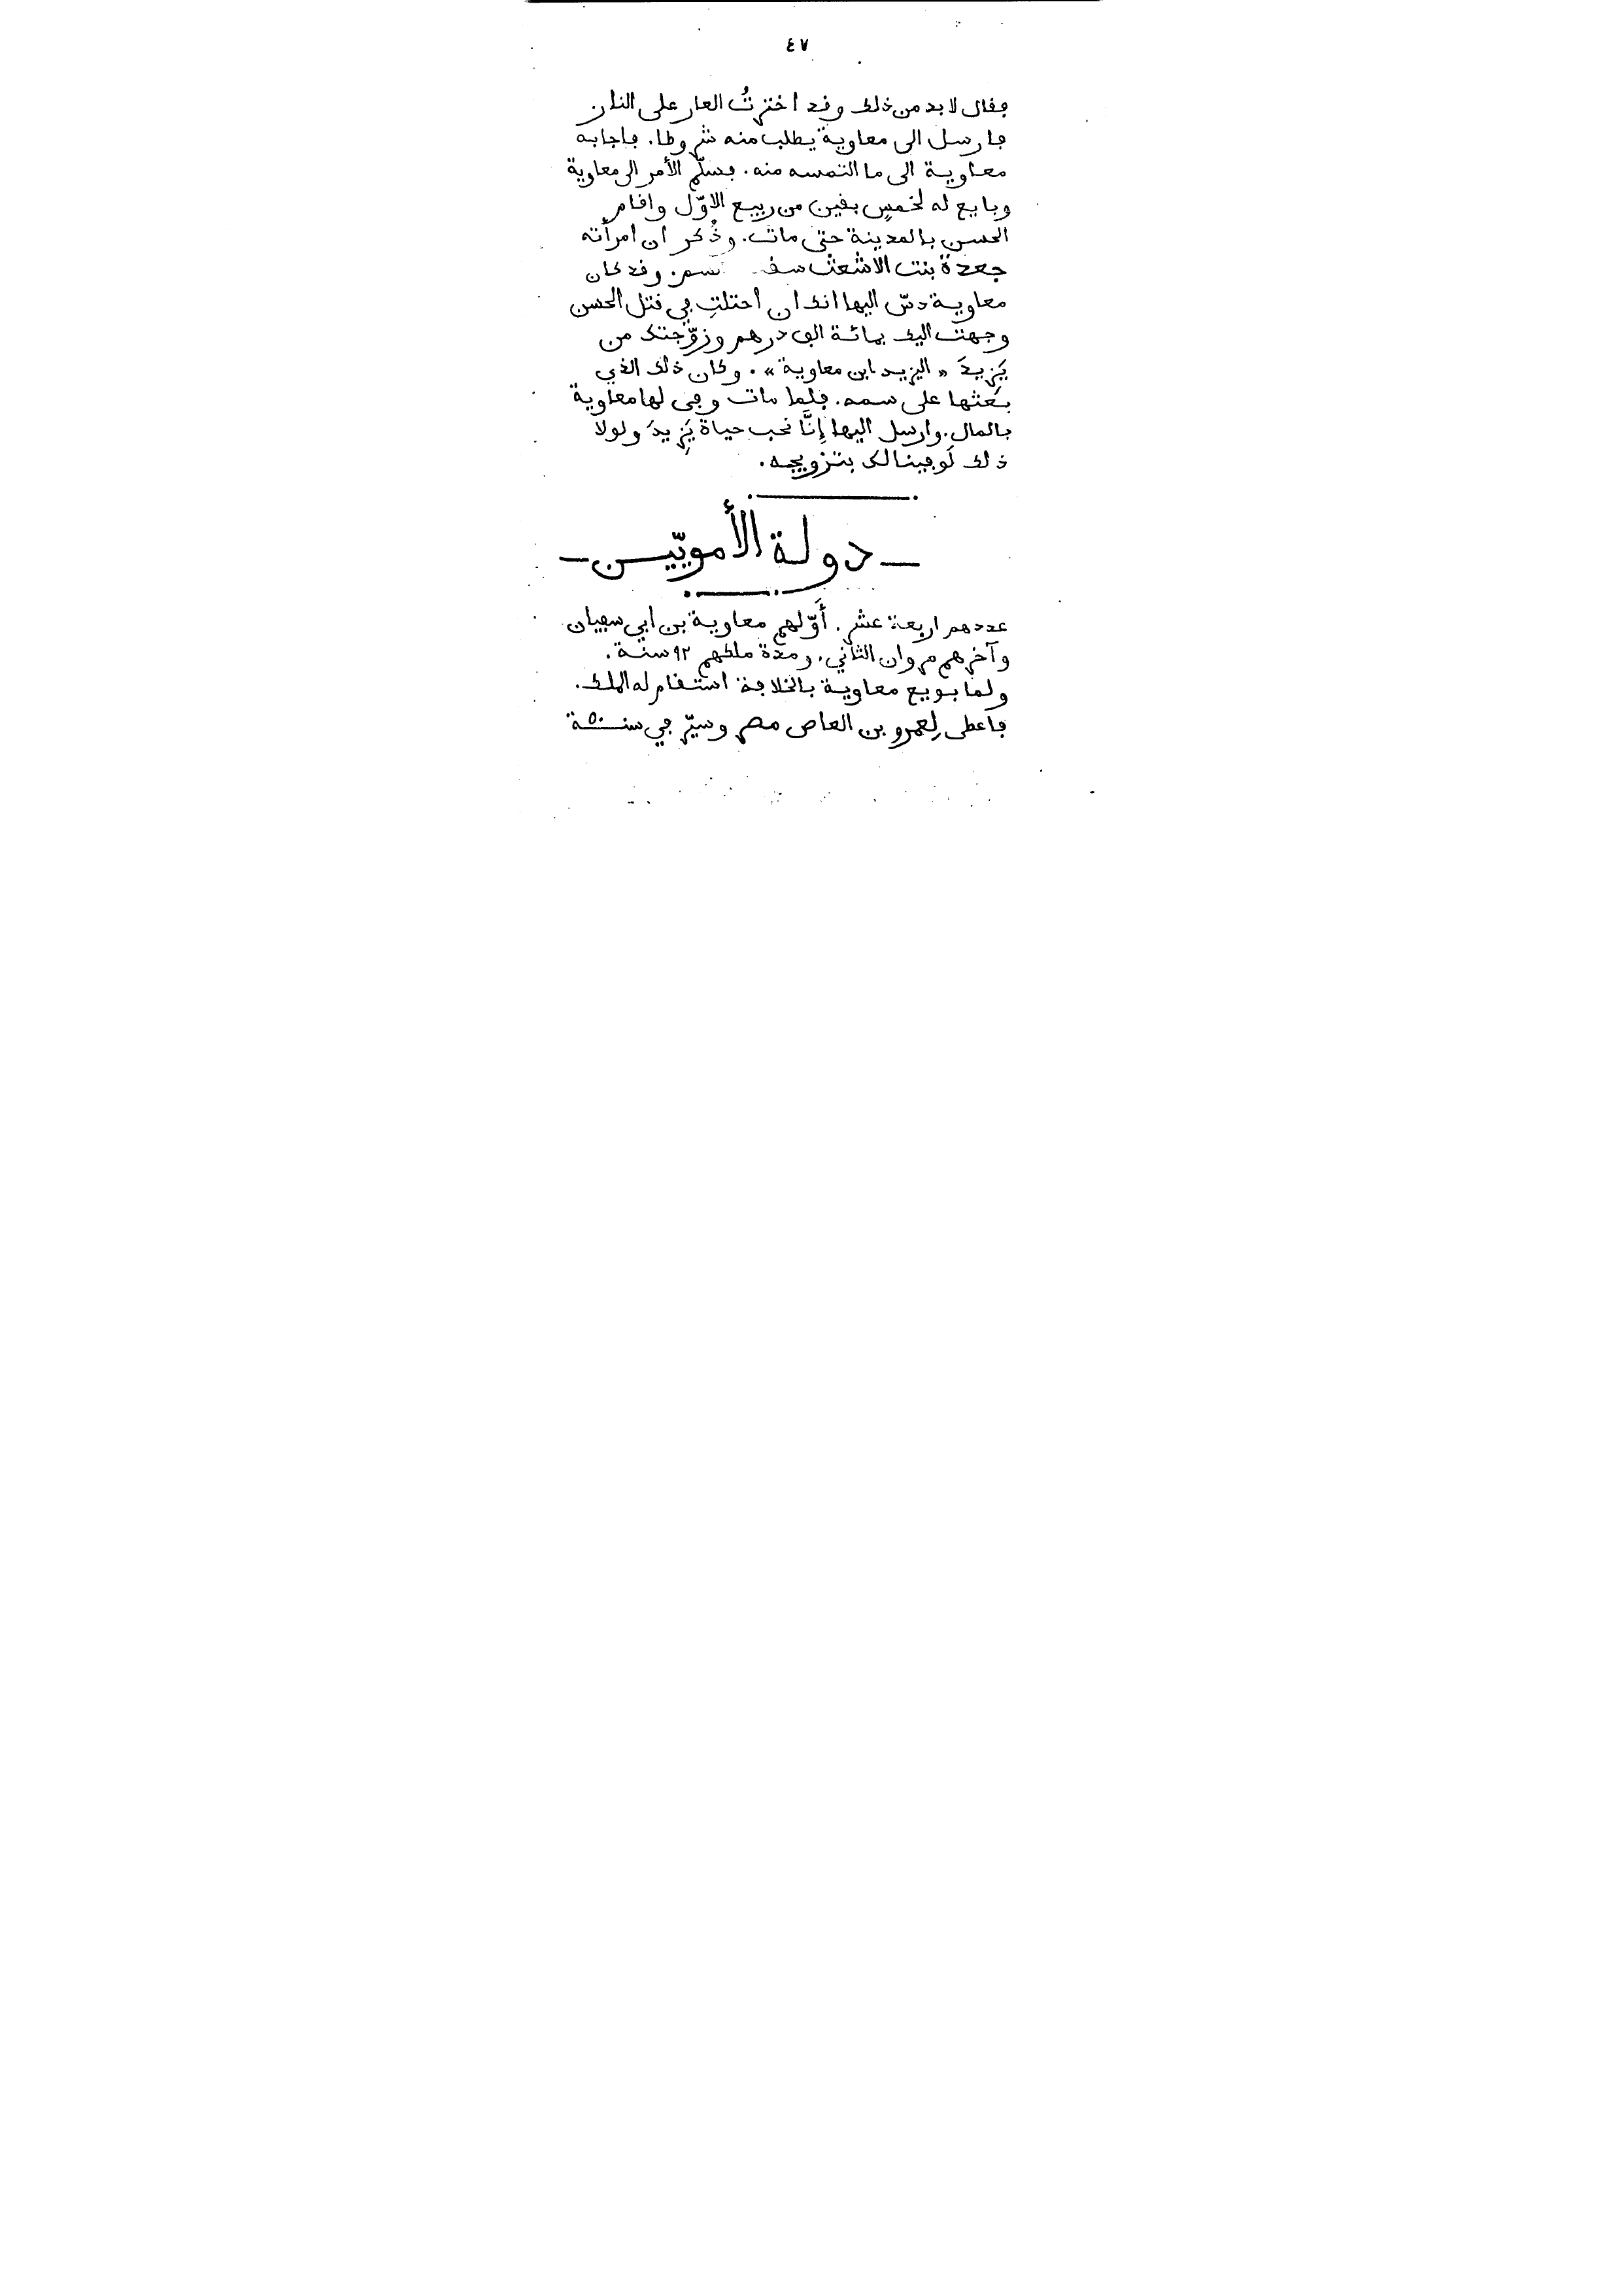 ٤٧
فقال لا بد من ذلك وقد اخترتُ العار على النار
فارسل الى معاوية يطلب منه شروطا. فاجابه
معاوية الى ما التمسه منه. فسلّم الأمر الى معاوية
وبايع له لخمسٍ بقين من ربيع الاوّل واقام
الحسن بالمدينة حتى مات. وذُكر ان امرأته
جعدة بنت الاشعث سم. وقد كان
معاوية دسّ اليها انك ان احتلتِ في قتل الحسن
وجهت اليك بمائة الف درهم وزوّجتك من
يَزِيدَ « اليزيد ابن معاوية ». وكان ذلك الذي
بعثها على سمه. فلما مات وفى لها معاوية
بالمال. وارسل اليها إنَّا نحب حياة يَزِيدَ ولولا
ذلك لَوفينا لك بتزويجه.
– دولة الأمويّيـن –
عددهم اربعة عشر. أَوّلهم معاوية بن ابي سفيان
وآخرهم مروان الثاني. ومدة ملكهم ٩٢ سنة.
ولما بويع معاوية بالخلافة استقام له الملك.
فاعطى لِعمرو بن العاص مصر وسيّر في سنة ٥٠